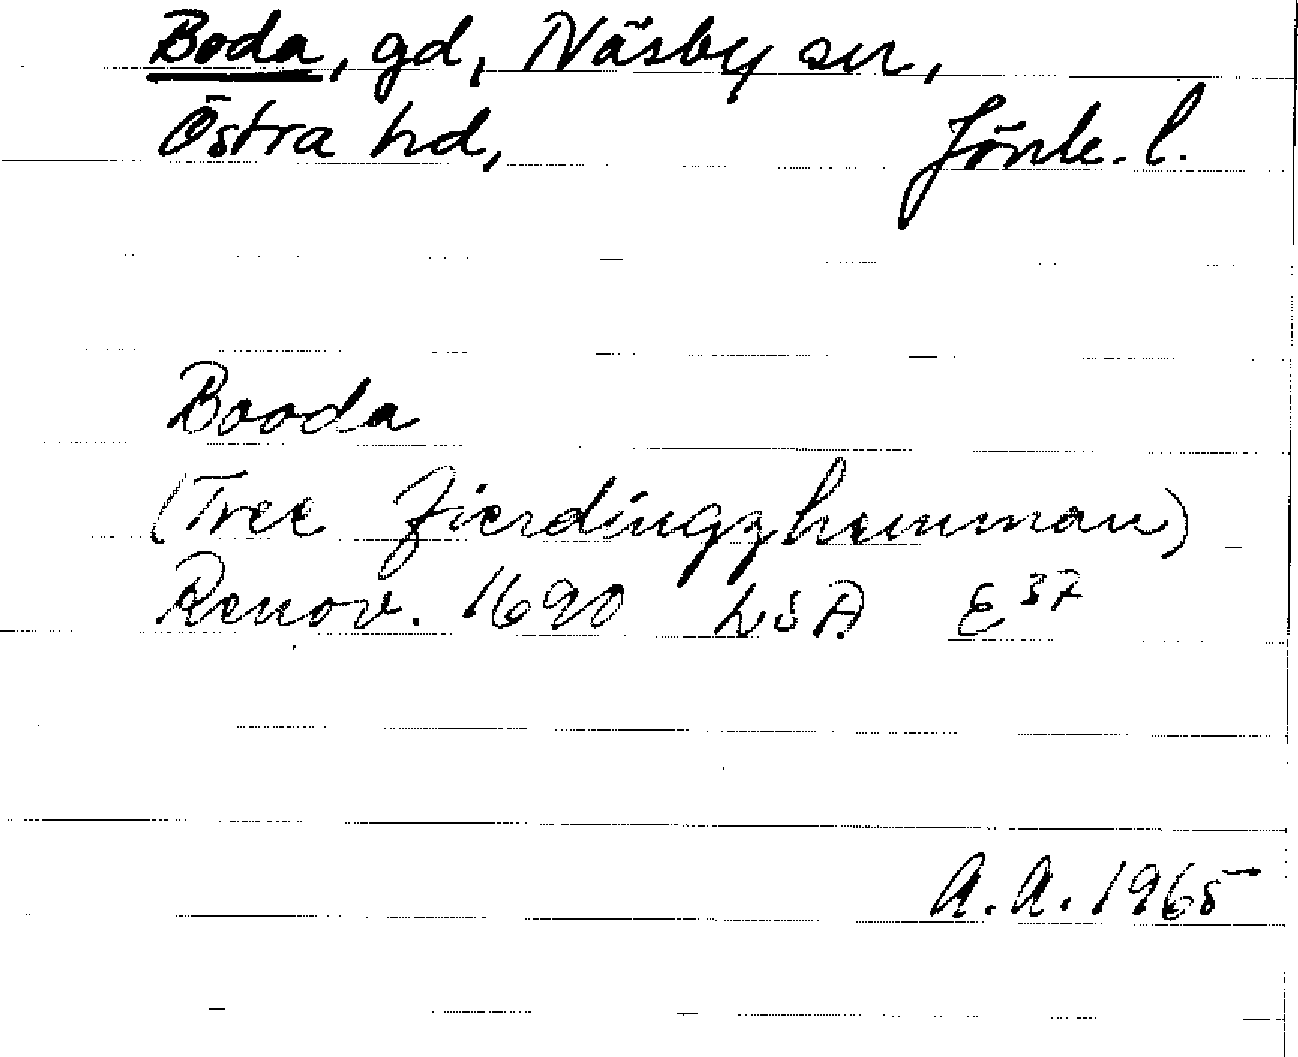 Boda, gd, Näsby sn,
Östra hd, Jönk. l.
Booda
(Tree fierdingzhemman)
Renov. 1690 LSA E37
A.A. 1965